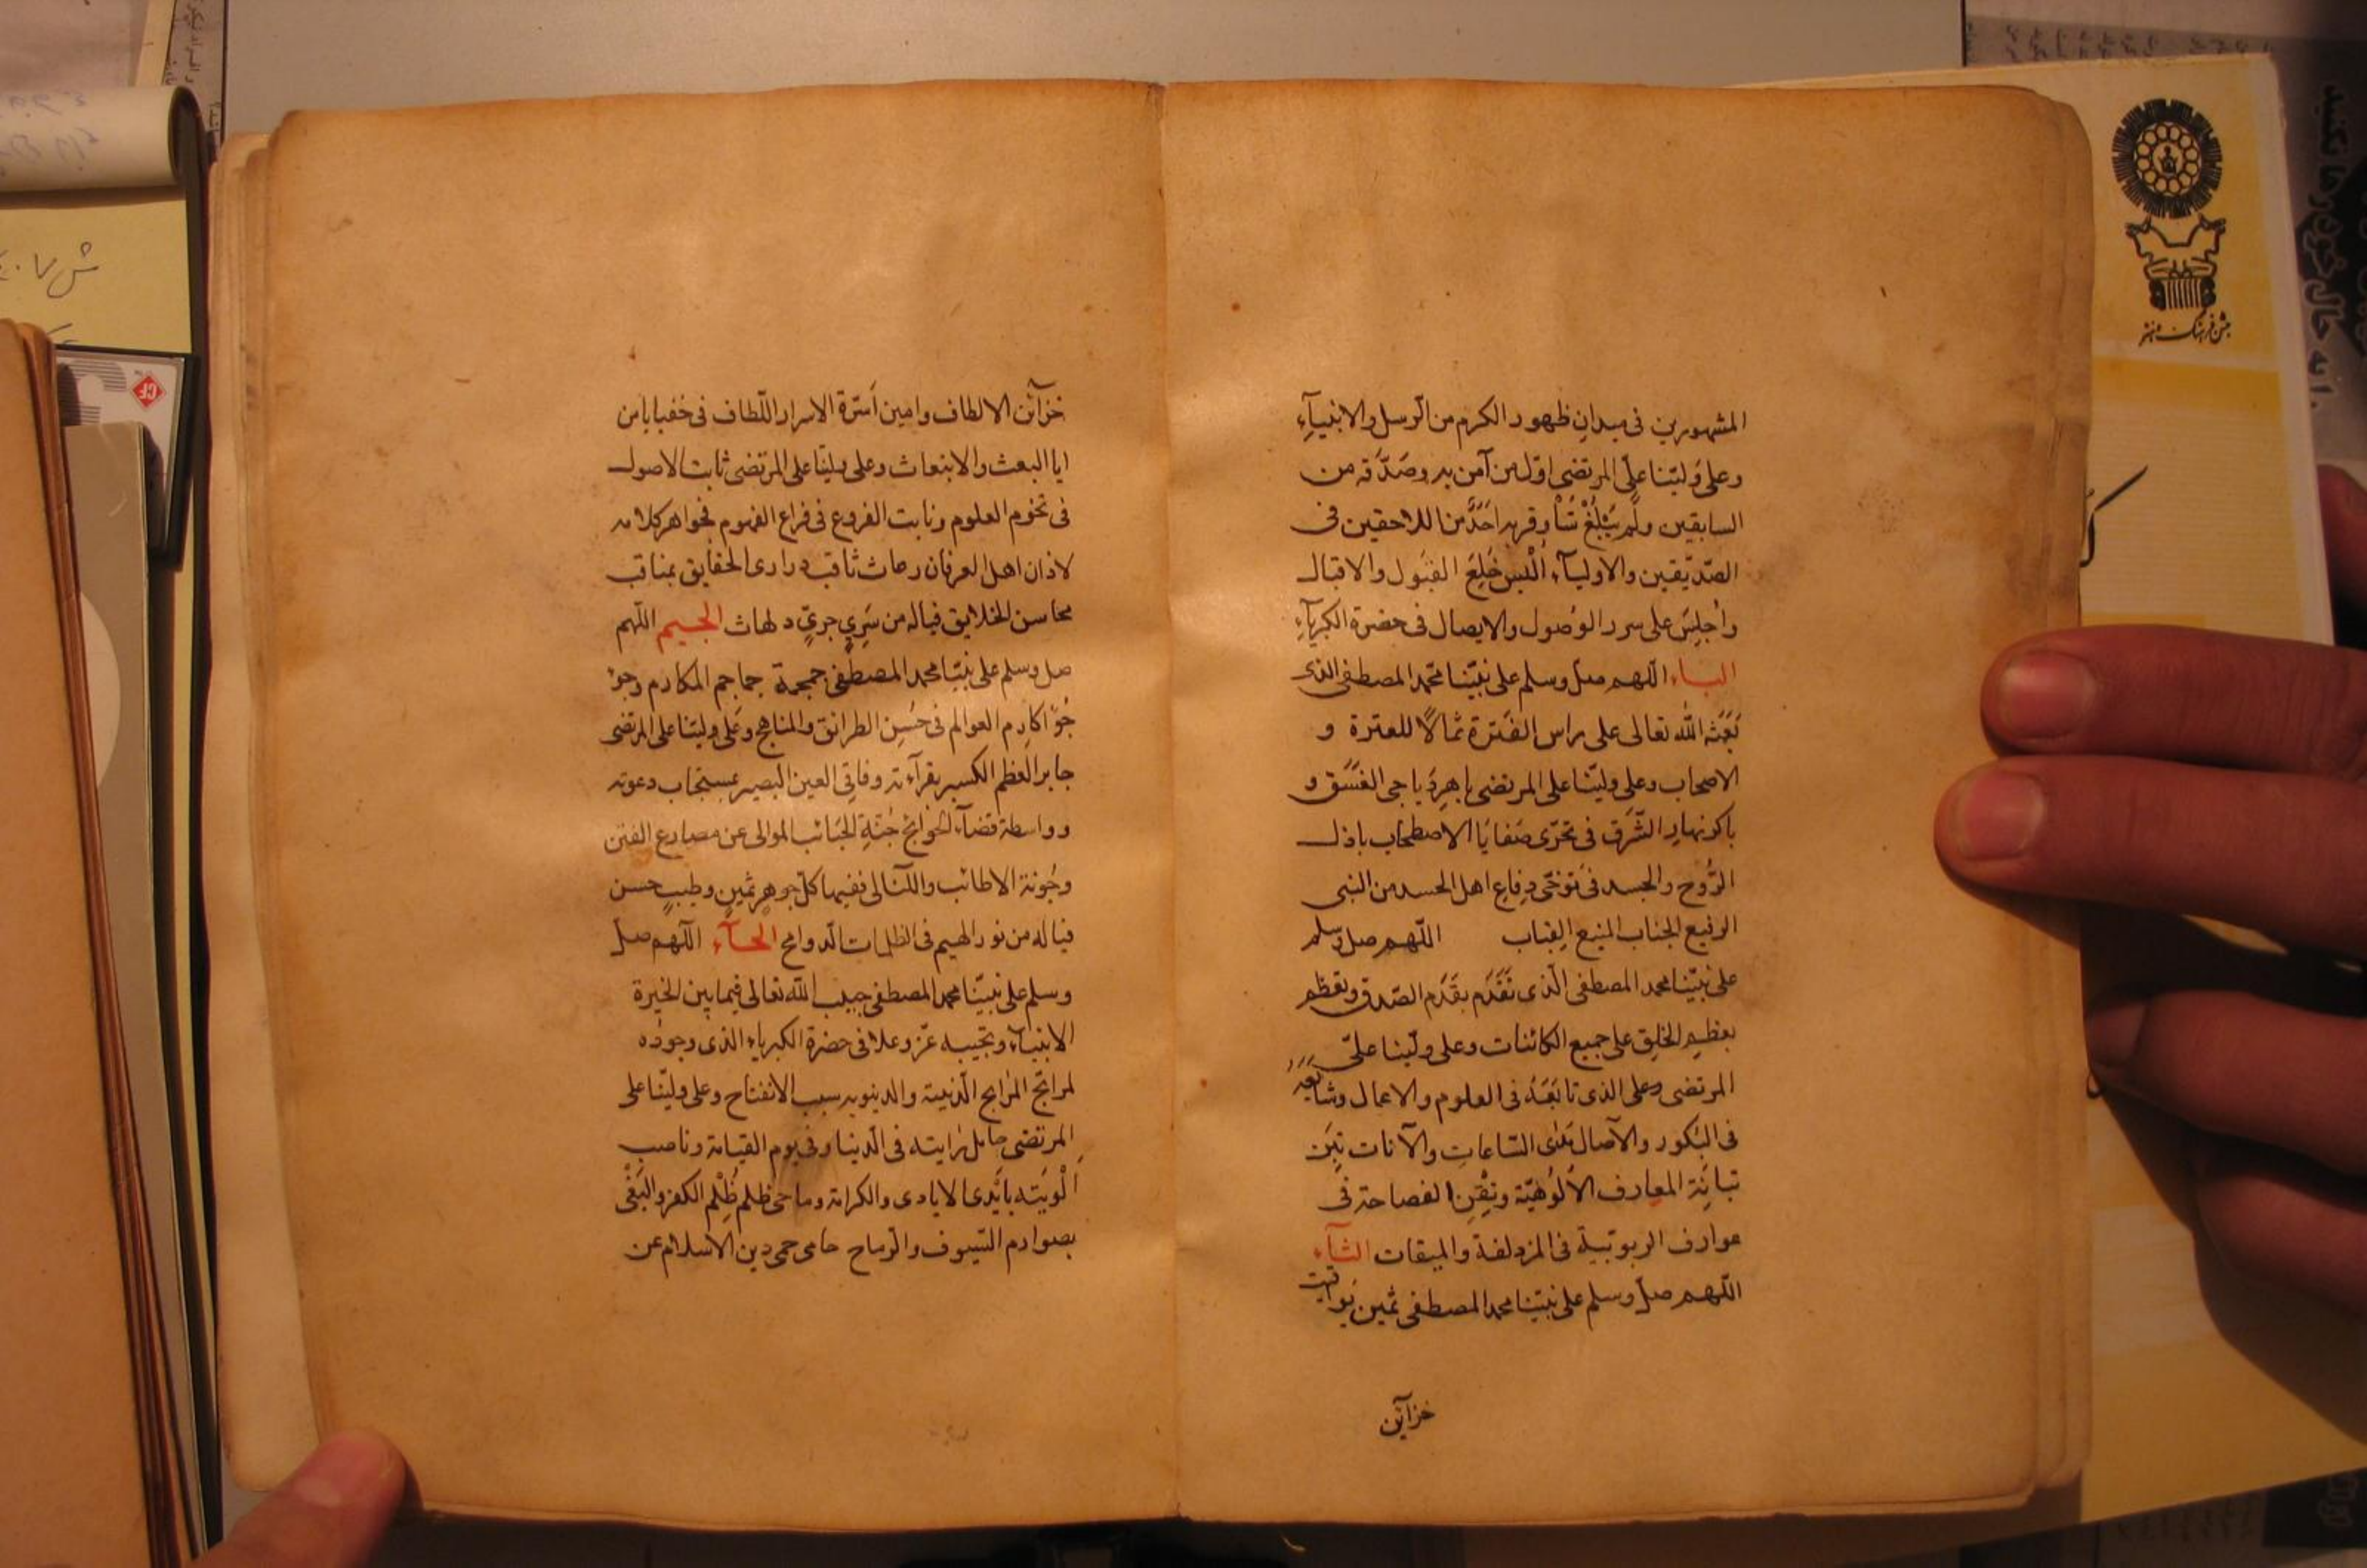 المشهورين فى ميدان ظهور الكرم من الرسل والانبيآء
وعلى وليّنا علىّ المرتضى اوّل من آمن به وصَدَّقه من
السابقين ولم يَبْلُغْ شأو قربه احَدٌ من اللاحقين فى
الصّدّيقين والاوليآء اُلْبِسَ خِلَعَ القَبول والاقبال
واُجلِسَ على سرر الوُصول والايصال فى حضرة الكبرياء
البـاء اللهم صل وسلم على نبيّنا محمّد المصطفى الذى
بَعَثَه الله تعالى على راس الفَترة ثمالاً للعترة و
الاصحاب وعلى وليّنا على المرتضى باهر دياجى الغَسَق و
باكر نهار الشّرق فى تحرّى صَفايَا الاصطحاب باذل
الرُّوح والجسد فى توخّى دِفاع اهل الحسد من النبى
الرفيع الجناب المنيع القِباب اللّهم صل وسلم
على نبيّنا محمد المصطفى الّذى تَقَدَّم بقَدَم الصّدق وتعظم
بعظيم الخلق على جميع الكائنات وعلى وليّنا علىّ
المرتضى وعلى الذى تابَعَهُ فى العلوم والاعمال وشايَعَهُ
فى البُكور والآصال مَدَى السّاعاتِ والآنات
المعارف الاُلُوهيّة الفصاحة فى
عوارف الربوبيّة فى المزدلفة والميقات الثـآء
اللّهم صل وسلم على نبيّنا محمد المصطفى ثمين يَواقيت
خزآئن
خزآئن الالطاف وامين اَسِرّة الاسرار اللّطاف فى خفيا يا من
ايا البعث والابتعاث وعلى وليّنا على المرتضى ثابت الاصول
فى تخوم العلوم ونابت الفروع فى فراع الفهوم فجواهر كلامه
لاذان اهل العرفان رعاث ثاقب درارى الحقايق بمناقب
محاسن الخلايق فياله من سَرِيٍ جرِيٍّ دلهاث الجـيم اللّهم
صل وسلم على نبيّنا محمد المصطفى جمجمة جماجم المكارم وجؤ
جُؤ اكارم العوالم فى حُسن الطرائق والمناهج وعَلى وليّنا على المرتضى
جابر العظم الكسير بقرآءته وفاتِق العين البصير بمستجاب دعوته
وواسطة قضآء الحوائج جُنّةِ الموالى عن مصارع الفتن
وجُونة الاطائب واللّئالى ففيها كلّ جوهر ثمين وطيبٍ حسن
فياله من نور الهيم فى الظلمات الدوامج الحـآء اللّهم صل
وسلم على نبيّنا محمد المصطفى حبيب الله تعالى فيما بين الخيرة
الانبيآء ونجيبه عزّ وعلا فى حضرة الكبرياء الذى وجودُه
لمراتج الدّينية والدنيويه سبب الانفتاح وعلى وليّنا على
المرتضى حامل رايته فى الدنيا وفى يوم القيامة وناصب
اَلْوِيَته باَيْدى الايادى والكرامة وماحى ظلم ظُلْم الكفر والبَغْى
بصوارم السّيوف والرماح حامى حمى دين الاسلام عن
جشن فرهنگ و هنر